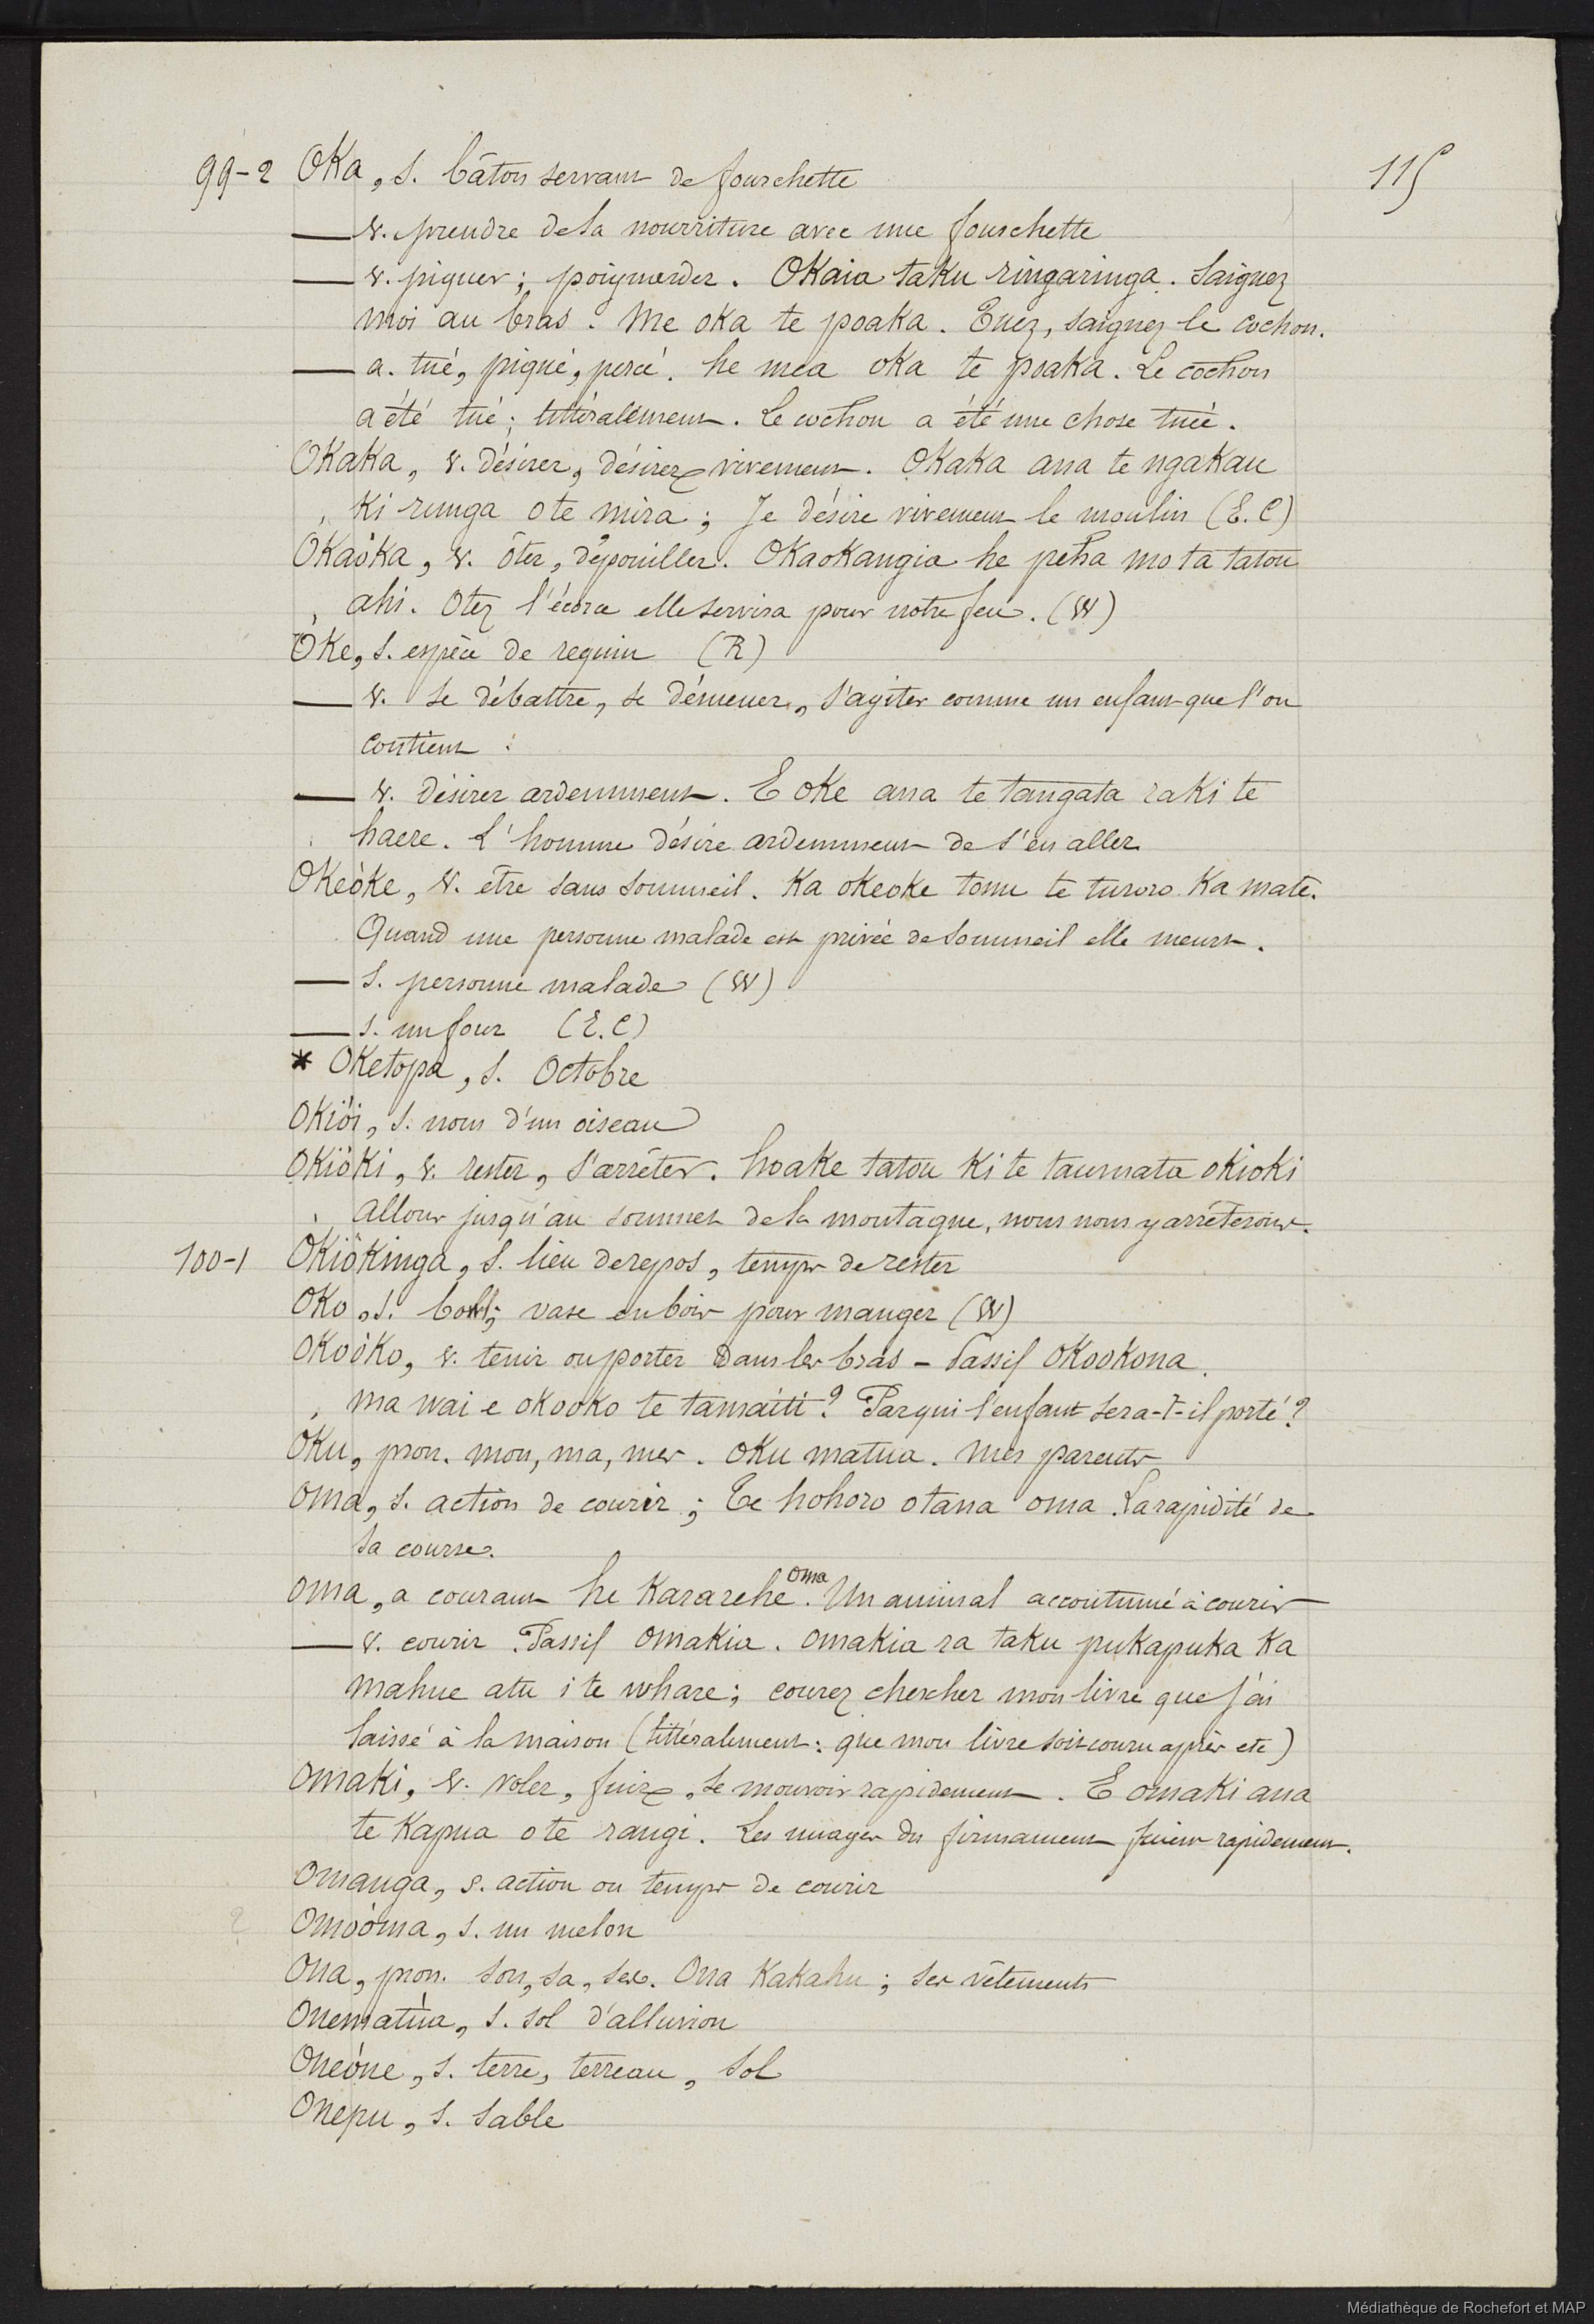 99-2 Oka, s. bâton servant de fourchette 115
— v. prendre de la nourriture avec une fourchette
— v. piquer; poignarder. Okaia taku ringaringa. Saignez
moi au bras. Me oka te poaka. Tuez, saignez le cochon.
— a. tué, piqué, percé. he mea oka te poaka. Le cochon
a été tué; littéralement. Le cochon a été une chose tuée.
Okaka, v. désirer, désirer vivement. Okaka ana te ngakau
ki runga o te mira; Je désire vivement le moulin (E.C)
Okaòka, v. ôter, dépouiller. Okaokangia he peha mo ta tatou
ahi. Otez l'écorce elle servira pour notre feu. (W)
Oke, s. espèce de requin (R)
— v. se débattre, se démener, s'agiter comme un enfant que l'on
contient.
— v. désirer ardemment. E oke ana te tangata ra ki te
haere. L'homme désire ardemment de s'en aller
Okeòke, v. être sans sommeil. Ka okeoke tonu te turoro ka mate.
Quand une personne malade est privée de sommeil elle meurt.
— s. personne malade (W)
— s. un four (E.C)
* Oketopa, s. Octobre
Okiòi, s. nom d'un oiseau
Okiòki, v. rester, s'arrêter. hoake tatou ki te taumata okioki
Allons jusqu'au sommet de la montagne, nous nous y arrêterons.
100-1 Okiòkinga, s. lieu de repos, temps de rester
Oko, s. bol; vase en bois pour manger (W)
Okoòko, v. tenir ou porter dans les bras – Passif Okookona.
ma wai e okooko te tamaiti? Par qui l'enfant sera-t-il porté?
Oku, pron. mon, ma, mes. oku matua. mes parents
Oma, s. action de courir; Te hohoro o tana oma. La rapidité de
sa course.
oma, a courant he kararehe oma. Un animal accoutumé à courir
— v. courir. Passif omakia. omakia ra taku pukapuka ka
mahue atu i te whare; courez chercher mon livre que j'ai
laissé à la maison (littéralement: que mon livre soit couru après etc)
Omaki, v. voler, fuir, se mouvoir rapidement. E omaki ana
te kapua o te rangi. Les nuages du firmament fuient rapidement.
Omanga, s. action ou temps de courir
Omoòma, s. un melon
Ona, pron. son, sa, ses. Ona kakahu; ses vêtements
Onematùa, s. sol d'alluvion
Oneòne, s. terre, terreau, sol
Onepu, s. sable
Médiathèque de Rochefort et MAP